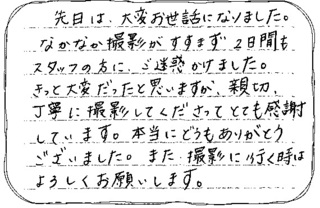 先日は、大変お世話になりました。
なかなか撮影がすすまず2日間も
スタッフの方に、ご迷惑かけました。
きっと大変だったと思いますが、親切、
丁寧に撮影してくださってとても感謝
しています。本当にどうもありがとう
ございました。また撮影に行く時は
よろしくお願いします。